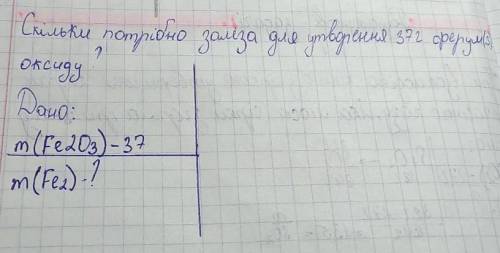 Скільки потрібно заліза для утворення 37г ферум(3)
оксиду?
Дано:
m(Fe2O3)-37
m(Fe2)-?